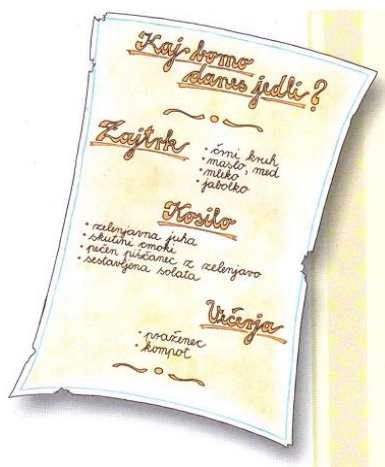 Kaj bomo
danes jedli?
Zajtrk
• črni kruh
• maslo, med
• mleko
• jabolko
Kosilo
• zelenjavna juha
• skutini cmoki
• pečen piščanec z zelenjavo
• sestavljena solata
Večerja
• praženec
• kompot